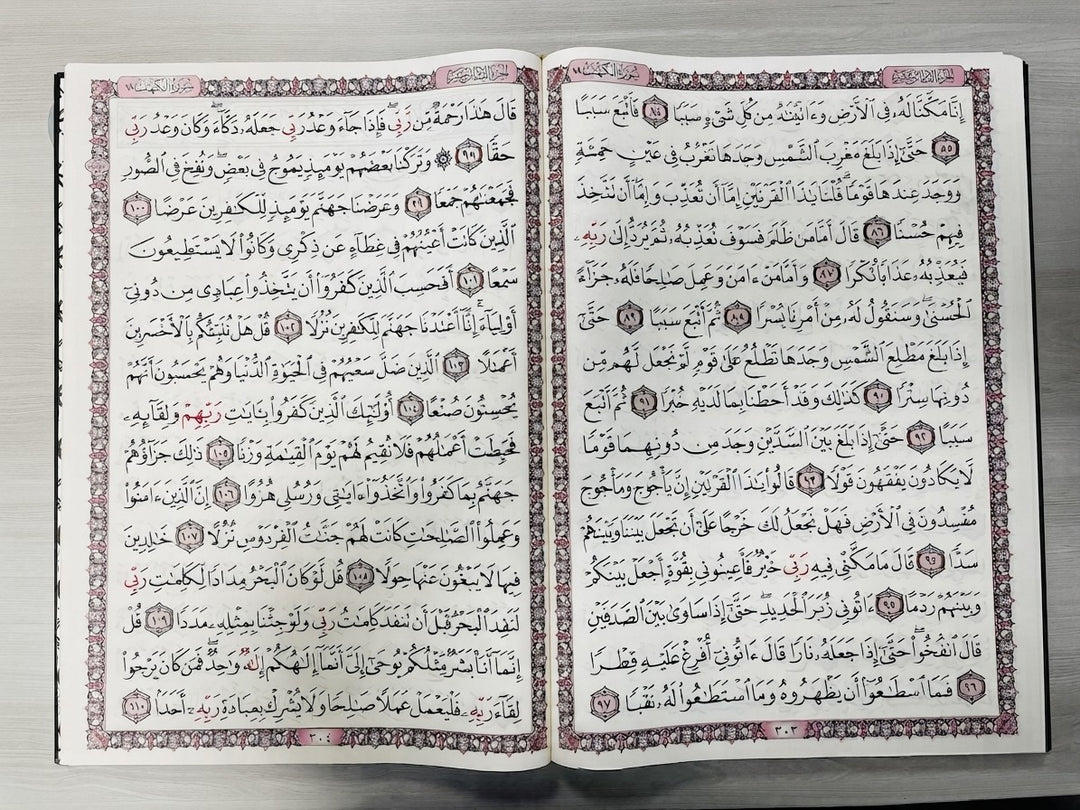 الجزء السادس عشر
سورة الكهف ١٨
إِنَّا مَكَّنَّا لَهُۥ فِى ٱلْأَرْضِ وَءَاتَيْنَٰهُ مِن كُلِّ شَىْءٍ سَبَبًا ٨٤ فَأَتْبَعَ سَبَبًا
٨٥ حَتَّىٰٓ إِذَا بَلَغَ مَغْرِبَ ٱلشَّمْسِ وَجَدَهَا تَغْرُبُ فِى عَيْنٍ حَمِئَةٍ
وَوَجَدَ عِندَهَا قَوْمًا ۗ قُلْنَا يَٰذَا ٱلْقَرْنَيْنِ إِمَّآ أَن تُعَذِّبَ وَإِمَّآ أَن تَتَّخِذَ
فِيهِمْ حُسْنًا ٨٦ قَالَ أَمَّا مَن ظَلَمَ فَسَوْفَ نُعَذِّبُهُۥ ثُمَّ يُرَدُّ إِلَىٰ رَبِّهِۦ
فَيُعَذِّبُهُۥ عَذَابًا نُّكْرًا ٨٧ وَأَمَّا مَنْ ءَامَنَ وَعَمِلَ صَٰلِحًا فَلَهُۥ جَزَآءً
ٱلْحُسْنَىٰ ۖ وَسَنَقُولُ لَهُۥ مِنْ أَمْرِنَا يُسْرًا ٨٨ ثُمَّ أَتْبَعَ سَبَبًا ٨٩ حَتَّىٰٓ
إِذَا بَلَغَ مَطْلِعَ ٱلشَّمْسِ وَجَدَهَا تَطْلُعُ عَلَىٰ قَوْمٍ لَّمْ نَجْعَل لَّهُم مِّن
دُونِهَا سِتْرًا ٩٠ كَذَٰلِكَ وَقَدْ أَحَطْنَا بِمَا لَدَيْهِ خُبْرًا ٩١ ثُمَّ أَتْبَعَ
سَبَبًا ٩٢ حَتَّىٰٓ إِذَا بَلَغَ بَيْنَ ٱلسَّدَّيْنِ وَجَدَ مِن دُونِهِمَا قَوْمًا
لَّا يَكَادُونَ يَفْقَهُونَ قَوْلًا ٩٣ قَالُوا۟ يَٰذَا ٱلْقَرْنَيْنِ إِنَّ يَأْجُوجَ وَمَأْجُوجَ
مُفْسِدُونَ فِى ٱلْأَرْضِ فَهَلْ نَجْعَلُ لَكَ خَرْجًا عَلَىٰٓ أَن تَجْعَلَ بَيْنَنَا وَبَيْنَهُمْ
سَدًّا ٩٤ قَالَ مَا مَكَّنِّى فِيهِ رَبِّى خَيْرٌ فَأَعِينُونِى بِقُوَّةٍ أَجْعَلْ بَيْنَكُمْ
وَبَيْنَهُمْ رَدْمًا ٩٥ ءَاتُونِى زُبَرَ ٱلْحَدِيدِ ۖ حَتَّىٰٓ إِذَا سَاوَىٰ بَيْنَ ٱلصَّدَفَيْنِ
قَالَ ٱنفُخُوا۟ ۖ حَتَّىٰٓ إِذَا جَعَلَهُۥ نَارًا قَالَ ءَاتُونِىٓ أُفْرِغْ عَلَيْهِ قِطْرًا
٩٦ فَمَا ٱسْطَٰعُوٓا۟ أَن يَظْهَرُوهُ وَمَا ٱسْتَطَٰعُوا۟ لَهُۥ نَقْبًا ٩٧
٣٠٣
الجزء السادس عشر
سورة الكهف ١٨
قَالَ هَٰذَا رَحْمَةٌ مِّن رَّبِّى ۖ فَإِذَا جَآءَ وَعْدُ رَبِّى جَعَلَهُۥ دَكَّآءَ ۖ وَكَانَ وَعْدُ رَبِّى
حَقًّا ٩٨ ۞ وَتَرَكْنَا بَعْضَهُمْ يَوْمَئِذٍ يَمُوجُ فِى بَعْضٍ ۖ وَنُفِخَ فِى ٱلصُّورِ
فَجَمَعْنَٰهُمْ جَمْعًا ٩٩ وَعَرَضْنَا جَهَنَّمَ يَوْمَئِذٍ لِّلْكَٰفِرِينَ عَرْضًا ١٠٠
ٱلَّذِينَ كَانَتْ أَعْيُنُهُمْ فِى غِطَآءٍ عَن ذِكْرِى وَكَانُوا۟ لَا يَسْتَطِيعُونَ
سَمْعًا ١٠١ أَفَحَسِبَ ٱلَّذِينَ كَفَرُوٓا۟ أَن يَتَّخِذُوا۟ عِبَادِى مِن دُونِىٓ
أَوْلِيَآءَ ۚ إِنَّآ أَعْتَدْنَا جَهَنَّمَ لِلْكَٰفِرِينَ نُزُلًا ١٠٢ قُلْ هَلْ نُنَبِّئُكُم بِٱلْأَخْسَرِينَ
أَعْمَٰلًا ١٠٣ ٱلَّذِينَ ضَلَّ سَعْيُهُمْ فِى ٱلْحَيَوٰةِ ٱلدُّنْيَا وَهُمْ يَحْسَبُونَ أَنَّهُمْ
يُحْسِنُونَ صُنْعًا ١٠٤ أُو۟لَٰٓئِكَ ٱلَّذِينَ كَفَرُوا۟ بِـَٔايَٰتِ رَبِّهِمْ وَلِقَآئِهِۦ
فَحَبِطَتْ أَعْمَٰلُهُمْ فَلَا نُقِيمُ لَهُمْ يَوْمَ ٱلْقِيَٰمَةِ وَزْنًا ١٠٥ ذَٰلِكَ جَزَآؤُهُمْ
جَهَنَّمُ بِمَا كَفَرُوا۟ وَٱتَّخَذُوٓا۟ ءَايَٰتِى وَرُسُلِى هُزُوًا ١٠٦ إِنَّ ٱلَّذِينَ ءَامَنُوا۟
وَعَمِلُوا۟ ٱلصَّٰلِحَٰتِ كَانَتْ لَهُمْ جَنَّٰتُ ٱلْفِرْدَوْسِ نُزُلًا ١٠٧ خَٰلِدِينَ
فِيهَا لَا يَبْغُونَ عَنْهَا حِوَلًا ١٠٨ قُل لَّوْ كَانَ ٱلْبَحْرُ مِدَادًا لِّكَلِمَٰتِ رَبِّى
لَنَفِدَ ٱلْبَحْرُ قَبْلَ أَن تَنفَدَ كَلِمَٰتُ رَبِّى وَلَوْ جِئْنَا بِمِثْلِهِۦ مَدَدًا ١٠٩ قُلْ
إِنَّمَآ أَنَا۠ بَشَرٌ مِّثْلُكُمْ يُوحَىٰٓ إِلَىَّ أَنَّمَآ إِلَٰهُكُمْ إِلَٰهٌ وَٰحِدٌ ۖ فَمَن كَانَ يَرْجُوا۟
لِقَآءَ رَبِّهِۦ فَلْيَعْمَلْ عَمَلًا صَٰلِحًا وَلَا يُشْرِكْ بِعِبَادَةِ رَبِّهِۦٓ أَحَدًۢا ١١٠
٣٠٤